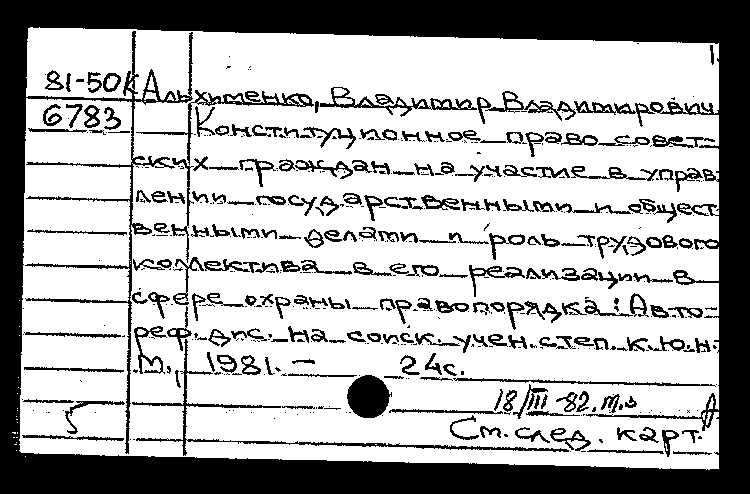 1.
81-50К Альхименко, Владимир Владимирович
6783 Конституционное право совет-
ских граждан на участие в управ-
лении государственными и общест-
венными делами и роль трудового
коллектива в его реализации в
сфере охраны правопорядка: Авто-
реф. дис. на соиск. учен. степ. к.ю.н.
М., 1981. – 24с.
18/III-82.
5 См. след. карт.